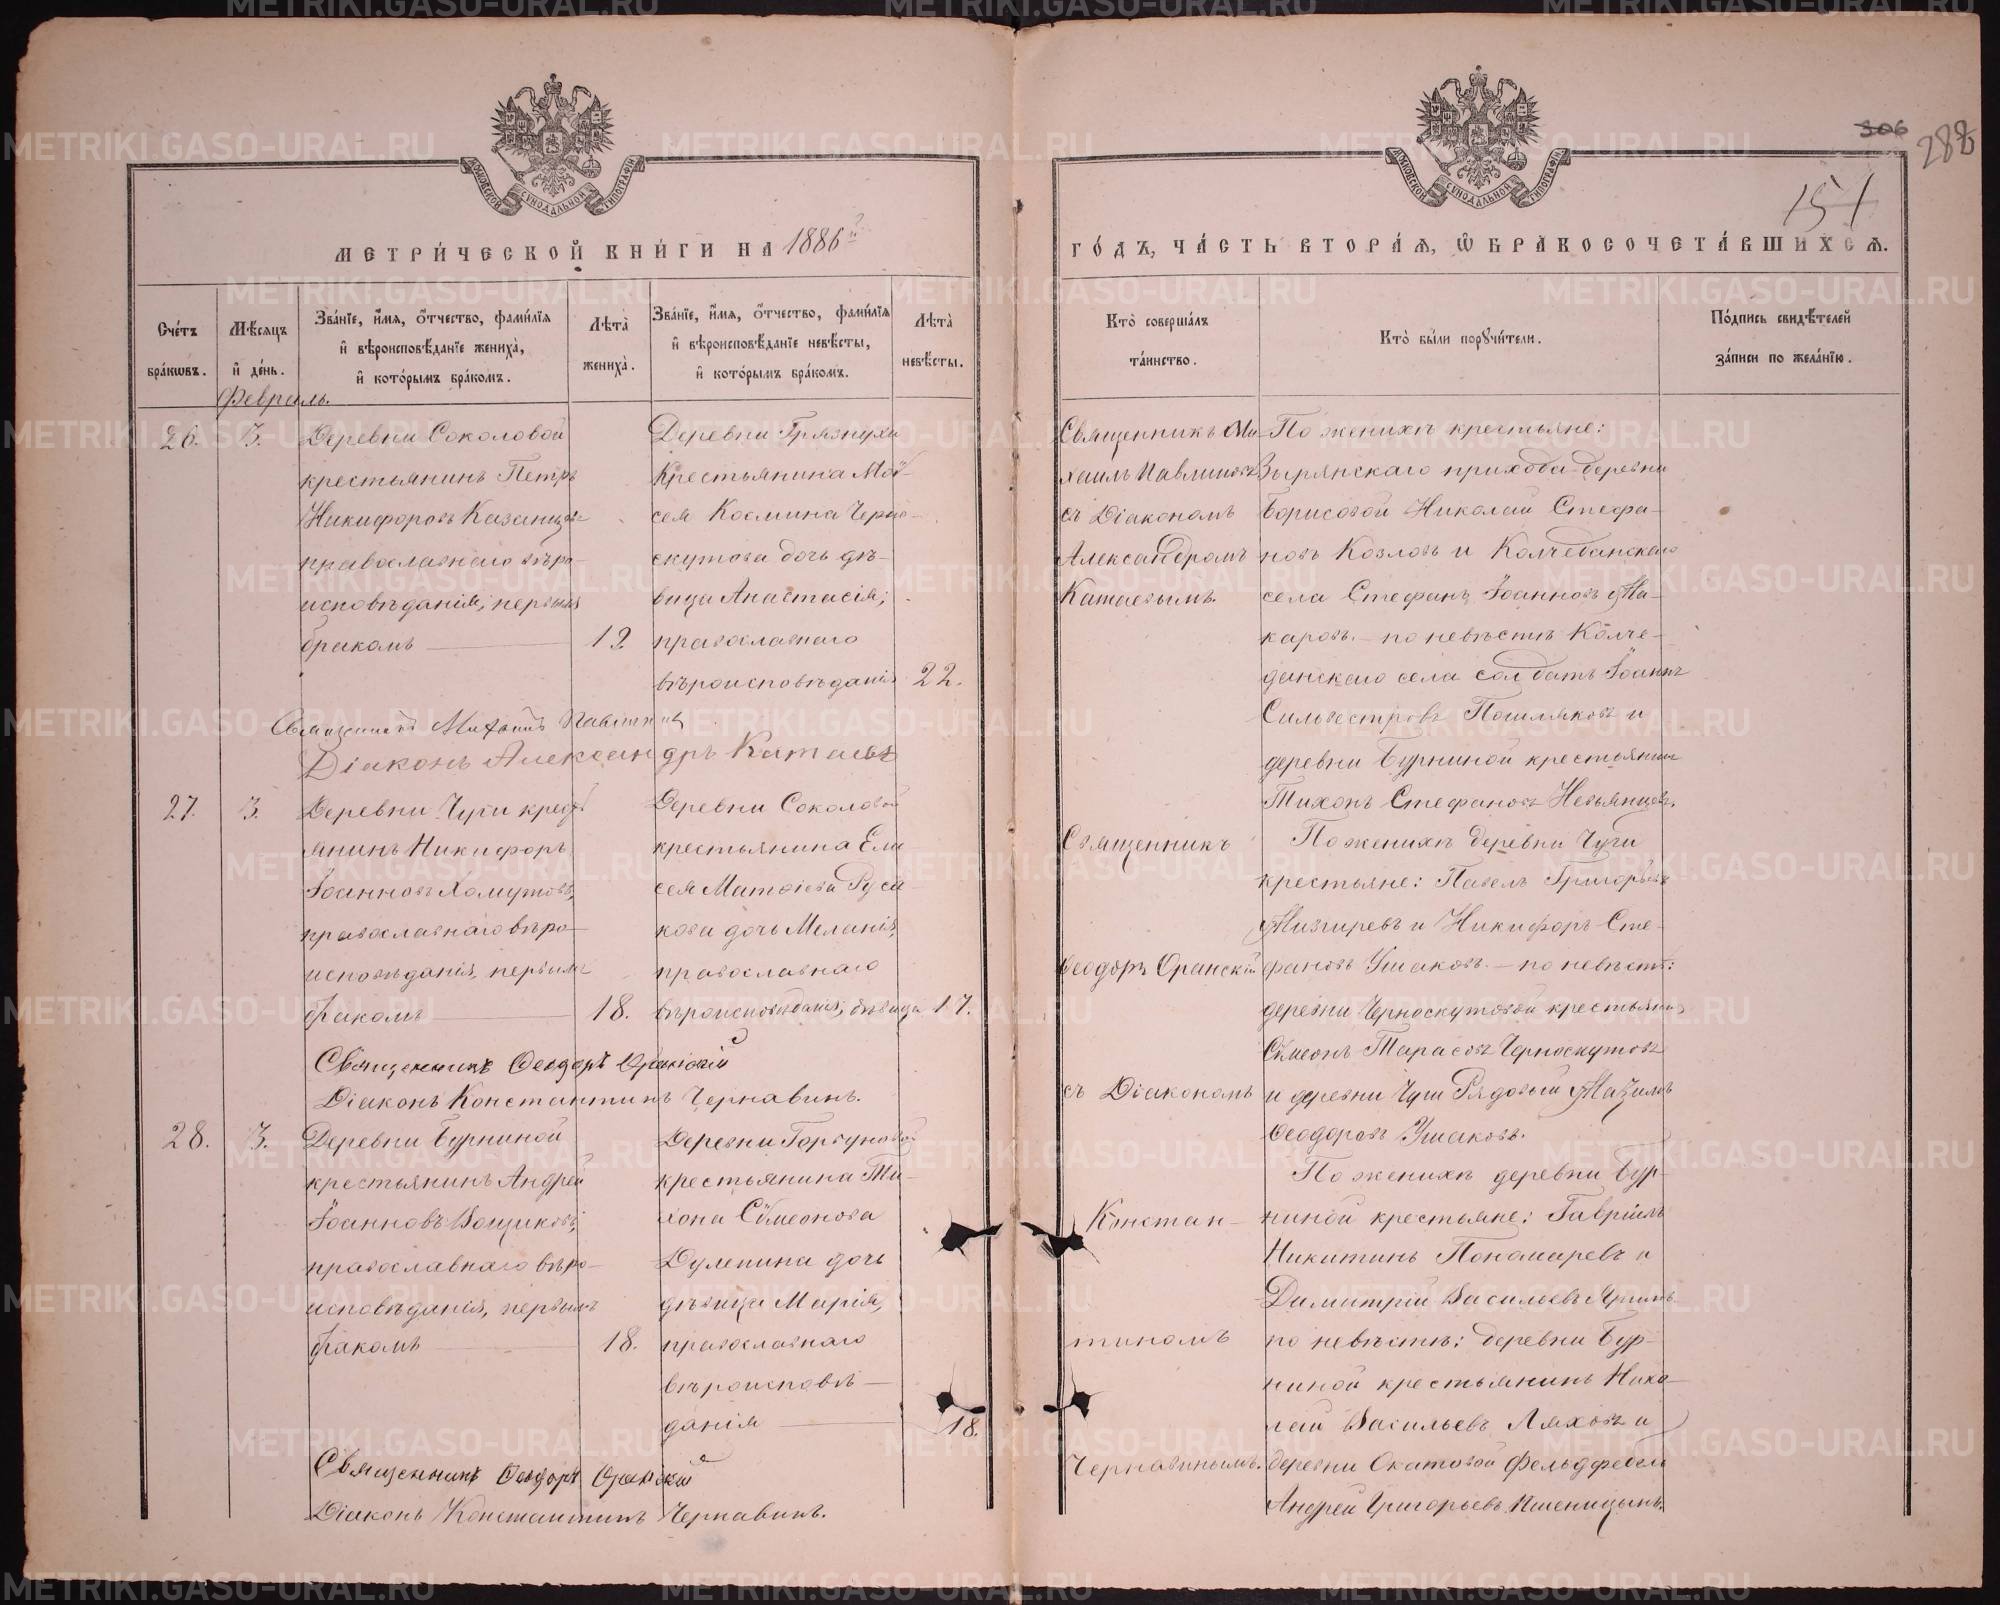 МЕТРИ́ЧЕСКОЙ КНИ́ГИ НА 1886й
Счéтъ бра́кѡвъ.
Мѣ́сяцъ и҆ де́нь.
Зва́нїе, и҆́мѧ, ѻ҆́тчество, фамѝлїѧ и҆ вѣроисповѣ́данїе жениха̀, и҆ кото́рымъ бра́комъ.
Лѣ́та жениха̀.
Зва́нїе, и҆́мѧ, ѻ҆́тчество, фамѝлїѧ и҆ вѣроисповѣ́данїе невѣ́сты, и҆ кото́рымъ бра́комъ.
Лѣ́та невѣ́сты.
Февраль.
26.
3.
Деревни Соколовой
крестьянинъ Петръ
Никифоровъ Казанцевъ
православнаго вѣро-
исповѣданія, первымъ
бракомъ
19
Деревни Грязнухи
Крестьянина Мой-
сея Космина Черно-
скутова дочь дѣ-
вица Анастасія;
православнаго
вѣроисповѣданія
22.
Священникъ Михаилъ Павлиновъ
Діаконъ Александръ Катаевъ
27.
3.
Деревни Чуги крестья-
янинъ Никифоръ
Іоанновъ Хомутовъ,
православнаго вѣро-
исповѣданія, первымъ
бракомъ
18.
Деревни Соколовой
крестьянина Ели-
сея Матѳіева Руса-
кова дочь Меланія,
православнаго
вѣроисповѣданія, дѣвица
17.
Священникъ Ѳеодоръ Оранскій
Діаконъ Константинъ Чернавинъ.
28.
3.
Деревни Бурниной
крестьянинъ Андрей
Іоанновъ Вощиковъ,
православнаго вѣро-
исповѣданія, первымъ
бракомъ
18.
Деревни Горбуновой
крестьянина Ти-
хона Сѵмеонова
Дулепина дочь
дѣвица Марія,
православнаго
вѣроисповѣ-
данія
18.
Священникъ Ѳеодоръ Оранскій
Діаконъ Константинъ Чернавинъ.
306
288
151
ГО́ДЪ, ЧА́СТЬ ВТОРА́Ѧ, Ѡ҆ БРАКОСОЧЕТА́ВШИХСѦ.
Кто̀ соверша́лъ та́инство.
Кто̀ бы́ли порꙋчи́тели.
По́дпись свидѣ́телей за́писи по жела́нїю.
Священникъ Ми-
хаилъ Павлиновъ
съ Діакономъ
Александромъ
Катаевымъ.
По женихѣ крестьяне:
Зырянскаго прихода деревни
Борисовой Николай Стефа-
новъ Козловъ и Колчеданскаго
села Стефанъ Іоанновъ Ма-
каровъ. — по невѣстѣ Колче-
данскаго села солдатъ Іоаннъ
Сильвестровъ Пошляковъ и
деревни Бурниной крестьянинъ
Тихонъ Стефановъ Невьянцевъ.
Священникъ
Ѳеодоръ Оранскій
съ Діакономъ
Констан-
тиномъ
Чернавинымъ.
По женихѣ деревни Чуги
крестьяне: Павелъ Григорьевъ
Мизгиревъ и Никифоръ Сте-
фановъ Ушаковъ. — по невѣстѣ:
деревни Черноскутовой крестьянинъ
Сѵмеонъ Тарасовъ Черноскутовъ
и деревни Чуги Рядовый
Ѳеодоровъ Ушаковъ.
По женихѣ деревни Бур-
ниной крестьяне: Гавріилъ
Никитинъ Пономаревъ и
Димитрій Васильевъ
по невѣстѣ: деревни Бур-
ниной крестьянинъ Нико-
лай Васильевъ Ляховъ и
деревни Окатовой Фельдфебель
Андрей Григорьевъ Пшеницынъ.
METRIKI.GASO-URAL.RU